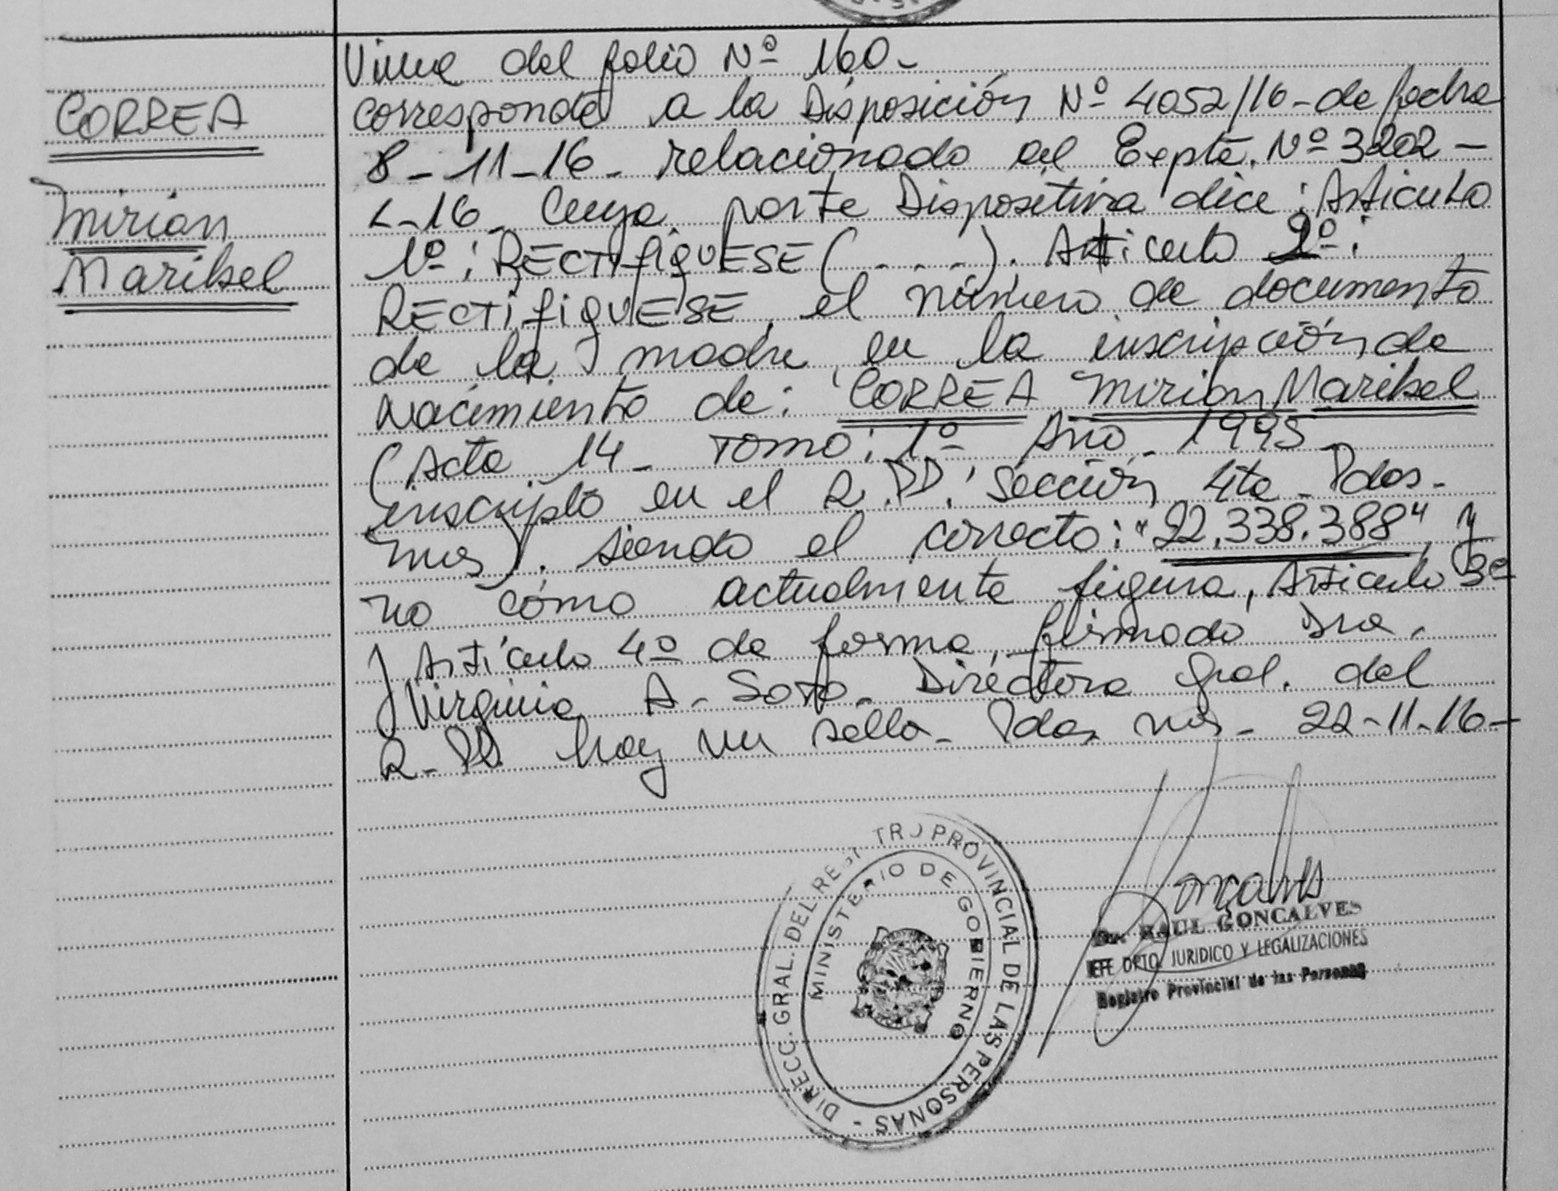 CORREA
Mirian
Maribel
Viene del folio Nº 160-
corresponde a la Disposición Nº 4052/16-de fecha
8-11-16- relacionado al Expte. Nº 3202-
L-16- Cuya parte Dispositiva dice: Articulo
1º: RECTIFIQUESE (....). Articulo 2º:
RECTIFIQUESE el número de documento
de la madre en la inscripción de
Nacimiento de: CORREA Mirian Maribel
(Acta 14- Tomo: 1º Año- 1995-
inscripto en el R.PP. Sección 4ta- Pdas-
mes). siendo el correcto: "22.338.388" y
no cómo actualmente figura, Articulo 3º
y Artículo 4º de forma, firmado Dra.
Virginia A- Soto- Directora Gral. del
R-PP hay un sello- Pdas, mes- 22-11-16-
DIRECC. GRAL. DEL REGISTRO PROVINCIAL DE LAS PERSONAS -
MINISTERIO DE GOBIERNO
Goncalves
Dr. RAUL GONCALVES
JEFE DPTO JURIDICO Y LEGALIZACIONES
Registro Provincial de las Personas